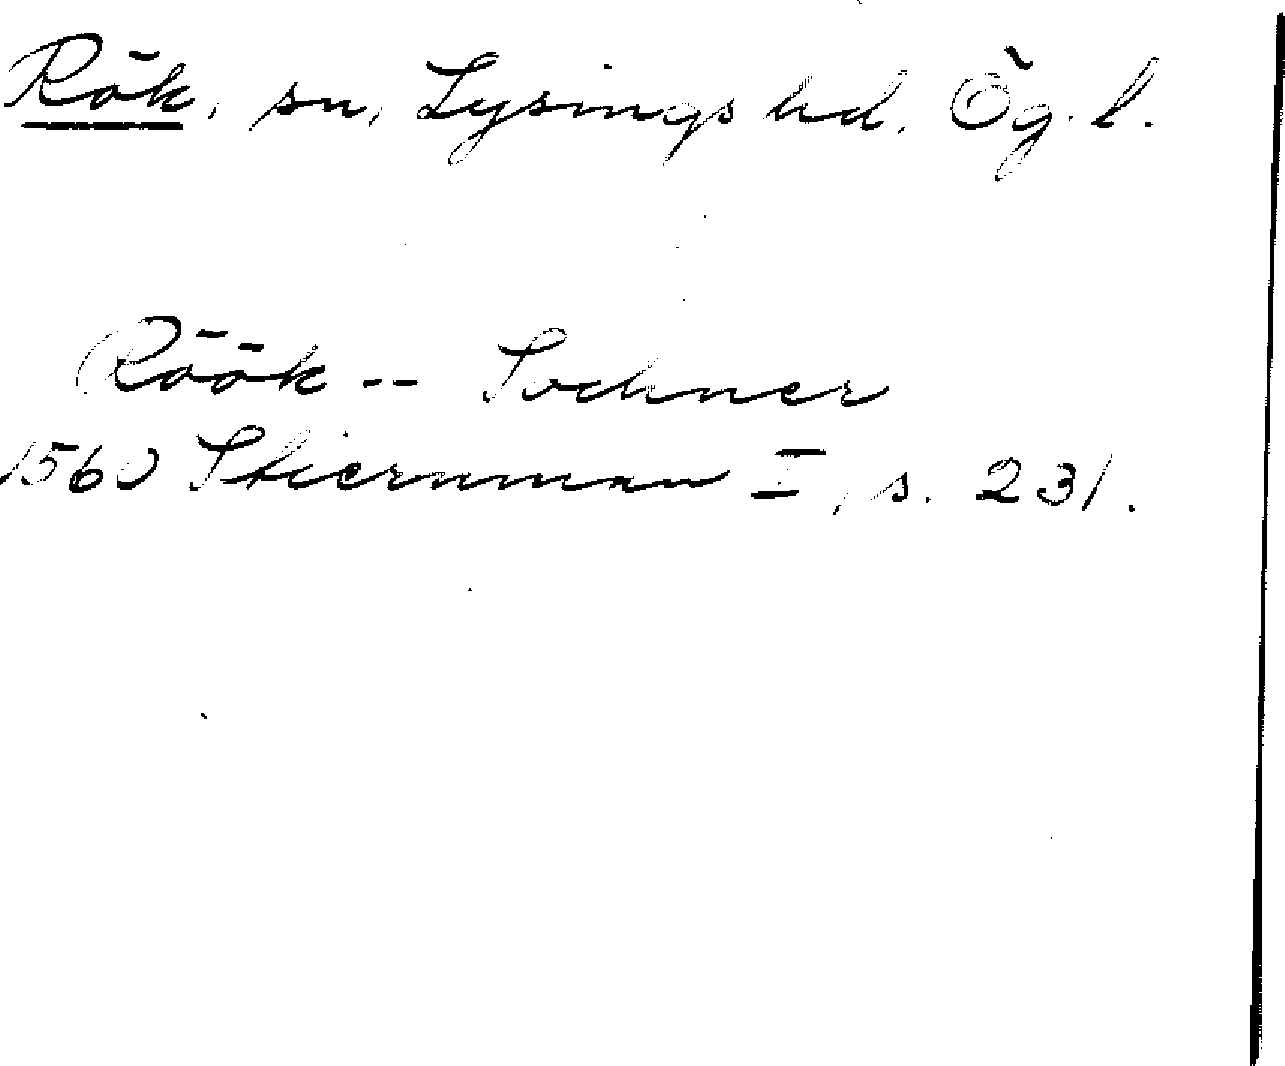 Rök, sn, Lysings hd. Ög. l.
Röök -- Sochner
1560 Stiernman I, s. 231.